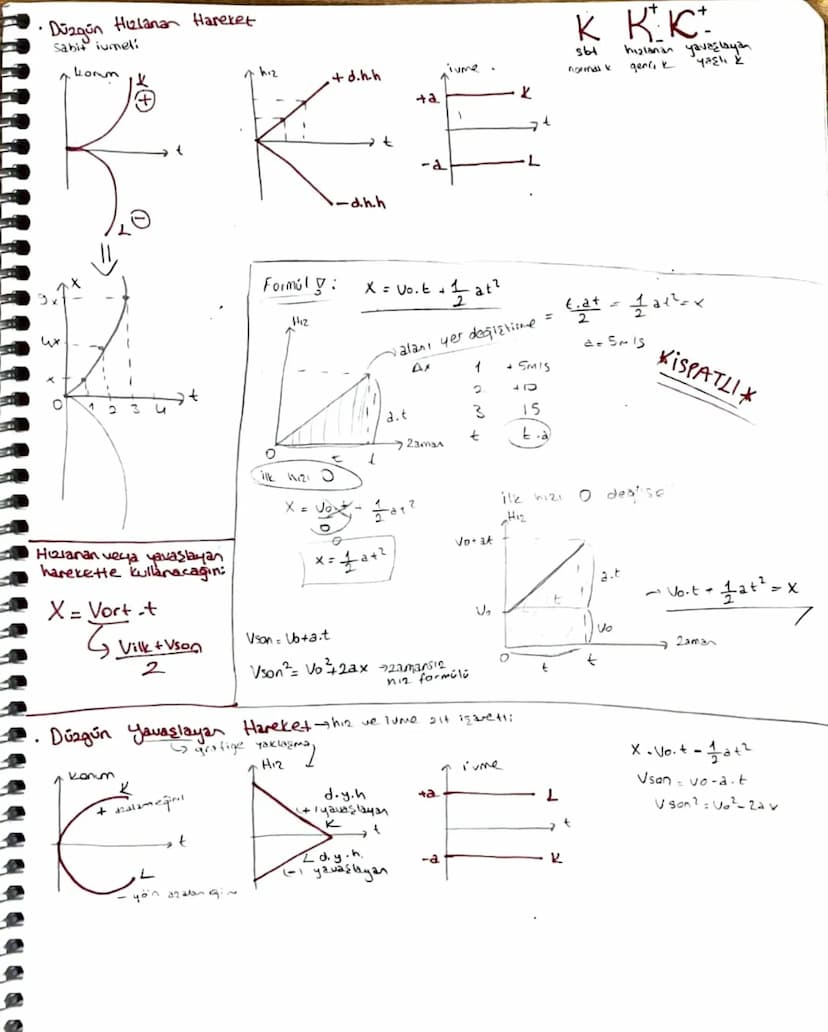 . Düzgün Hızlanan Hareket
sabit ivmeli
K K K
+ +
- -
sbt hızlanan yavaşlayan
normal k genç k yaşlı k
konum
K
+
t
L
-
hız
+ d.h.h
t
- d.h.h
ivme
+a
K
t
-a
L
x
9x
4x
x
0 1 2 3 4 t
Formül : x = Vo.t + 1/2 at²
Hız
alanı yer değiştirme = t.at/2 = 1/2 at² = x
a = 5m/s
KİSPATLIK
Δx
1 +5m/s
2 +10
3 15
t t.a
a.t
0 t t Zaman
ilk hızı 0
x = Vo.t - 1/2 at²
0
0
x = 1/2 at²
ilk hızı 0 değilse
Hız
Vo+at
a.t
t
Vo
Vo
0 t t Zaman
→ Vo.t + 1/2 at² = x
Hızlanan veya yavaşlayan
harekette kullanacağın:
X = Vort .t
Vilk + Vson
2
Vson = Vo+a.t
Vson² = Vo²+2ax → zamansız
hız formülü
. Düzgün Yavaşlayan Hareket → hız ve ivme zıt işaretli
grafiğe yaklaşma
konum
K
+ azalan eğim
t
L
- yön azalan eğim
Hız
d.y.h
(+) yavaşlayan
K
t
L d.y.h.
(-) yavaşlayan
ivme
+a
L
t
-a
K
x = Vo.t - 1/2 at²
Vson = Vo - a.t
Vson² = Vo² - 2ax